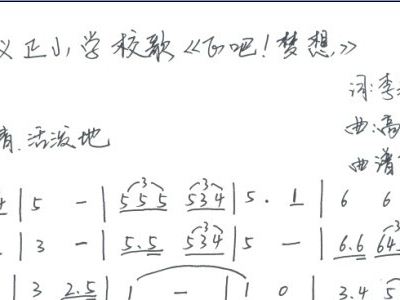 义正小学校歌《飞吧！梦想》
词:李
曲:高
情.活泼地
曲谱
4 | 5 - | 5 5 5 5 3 4 | 5 . 1 | 6 6
| 3 - | 5.5 5 3 4 | 5 - | 6.6 6 4
| 3 2.5 | 1 - | 1 0 | 3.4 5